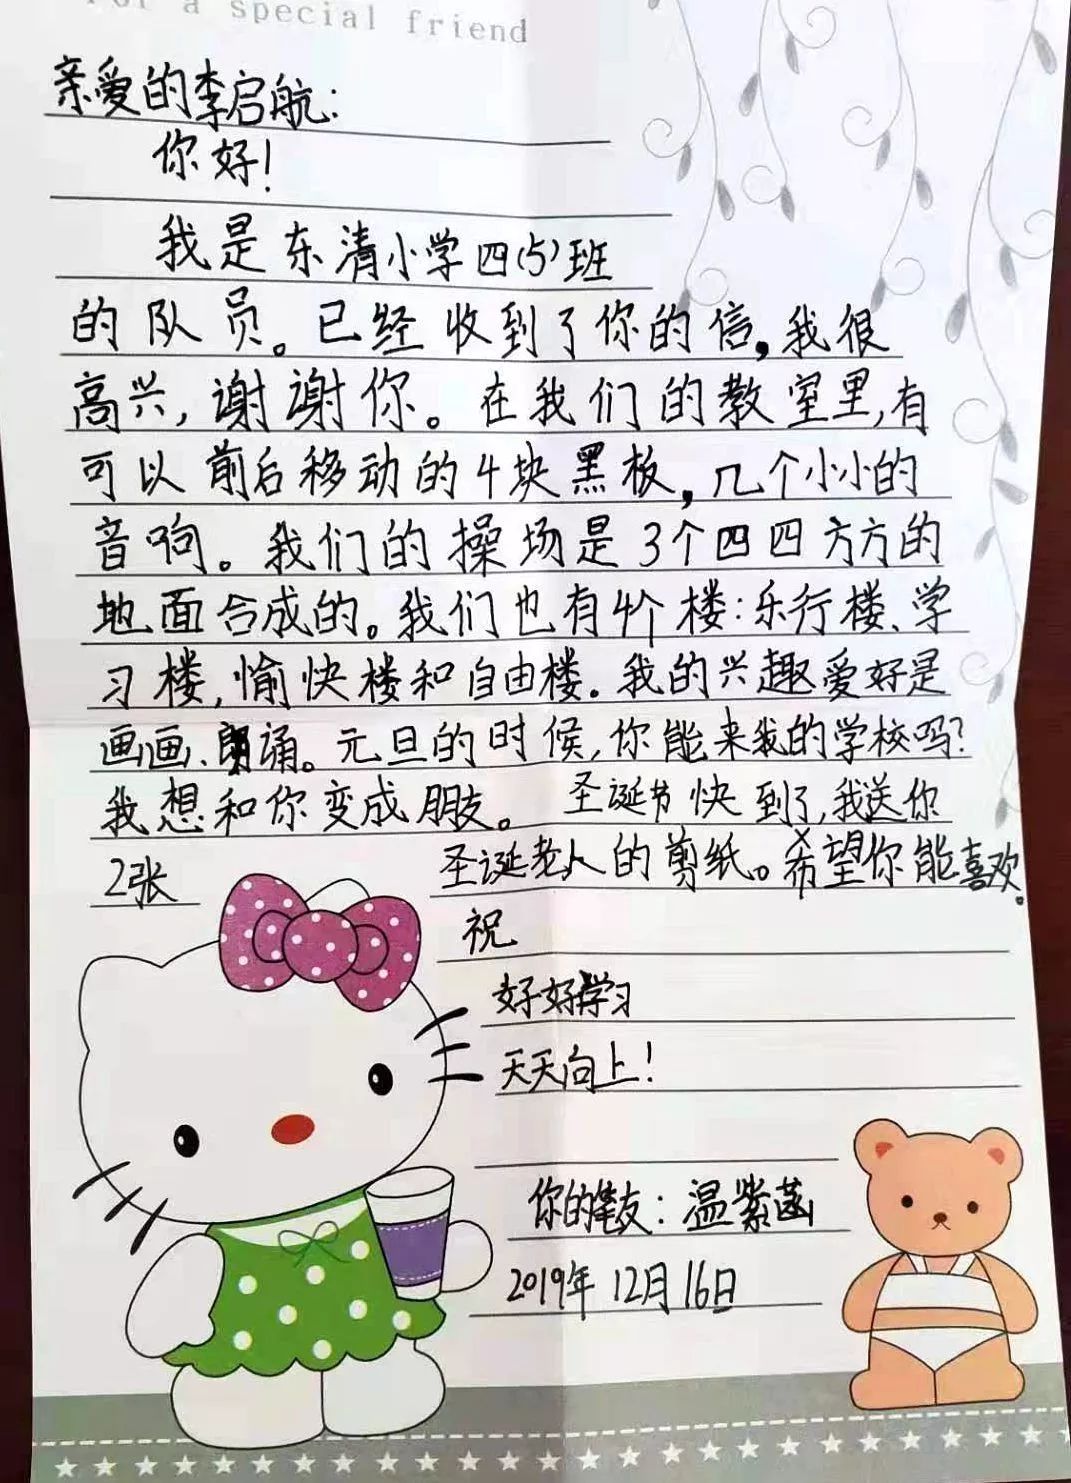 For a special friend
亲爱的李启航:
你好!
我是东清小学四(5)班
的队员。已经收到了你的信,我很
高兴,谢谢你。在我们的教室里,有
可以前后移动的4块黑板,几个小小的
音响。我们的操场是3个四四方方的
地面合成的。我们也有4个楼:乐行楼、学
习楼,愉快楼和自由楼。我的兴趣爱好是
画画、朗诵。元旦的时候,你能来我的学校吗?
我想和你变成朋友。圣诞节快到了,我送你
2张 圣诞老人的剪纸。希望你能喜欢。
祝
好好学习
天天向上!
你的笔友:温紫菡
2019年12月16日